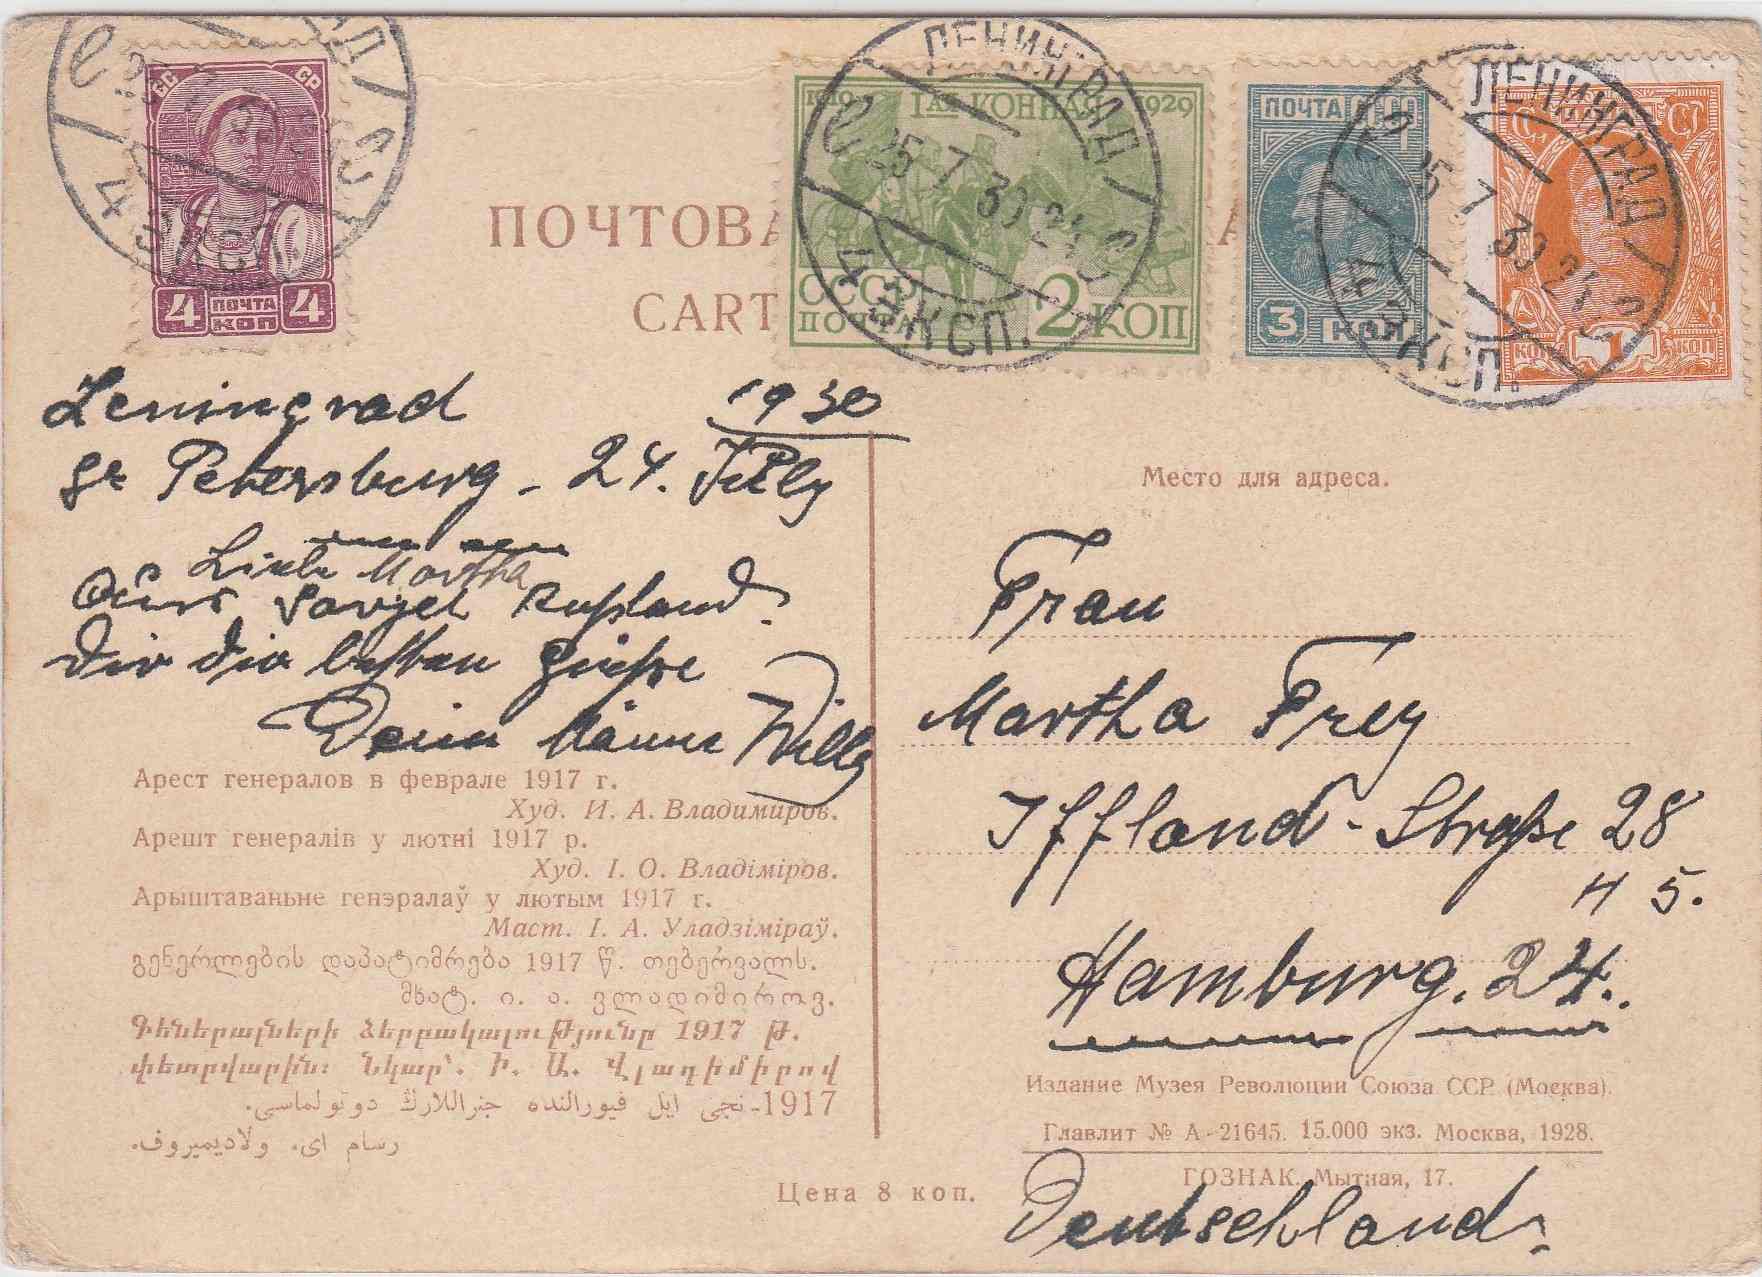 СС СР
4 ПОЧТА 4
КОП
ЛЕНИНГРАД
4 ЭКСП.
1919 1АЯ КОННАЯ 1929
СССР
ПОЧТА
2 КОП
ЛЕНИНГРАД
25 7 30 24
4 ЭКСП.
ПОЧТА СССР
3 КОП
1
КОП КОП
ЛЕНИНГРАД
25 7 30 24
4 ЭКСП.
ПОЧТОВА
CART
Leningrad 1930
Petersburg - 24. July
Liebe Martha
Aus Sovjet Rußland.
Dir die besten Grüße
Dein Männe Willy
Арест генералов в феврале 1917 г.
Худ. И. А. Владимиров.
Арешт генералів у лютні 1917 р.
Худ. І. О. Владіміров.
Арыштаваньне генэралаў у лютым 1917 г.
Маст. І. А. Уладзіміраў.
გენერლების დაპატიმრება 1917 წ. თებერვალს.
მხატ. ი. ა. ვლადიმიროვ.
Գեներալների ձերբակալությունը 1917 թ.
փետրվարին։ Նկար՝. Ի. Ա. Վլադիմիրով
1917-نجی ایل فیورالنده جنراللارڭ دوتولماسی.
رسام ای. ولادیمیروف.
Цена 8 коп.
Место для адреса.
Frau
Martha Frey
Iffland-Straße 28
H 5.
Hamburg. 24.
Издание Музея Революции Союза ССР. (Москва).
Главлит № А-21645. 15.000 экз. Москва, 1928.
ГОЗНАК. Мытная, 17.
Deutschland.